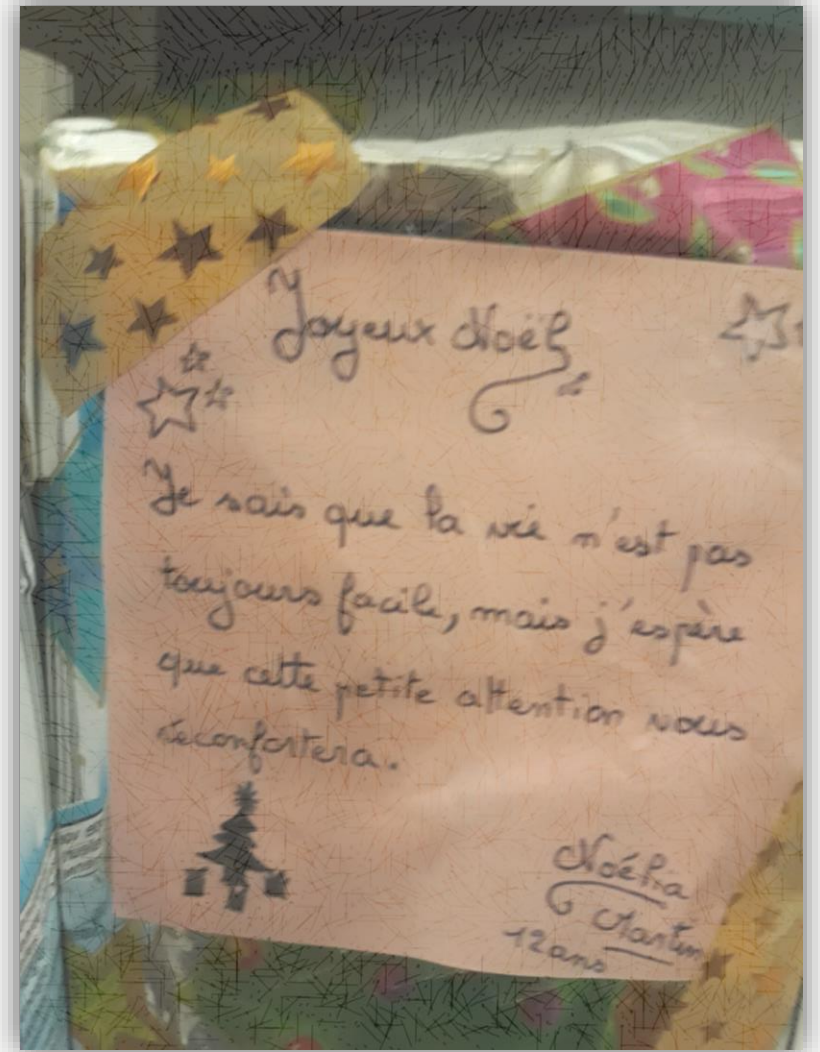 Joyeux Noël
Je sais que la vie n'est pas
toujours facile, mais j'espère
que cette petite attention vous
réconfortera.
Noélia
Martin
12 ans